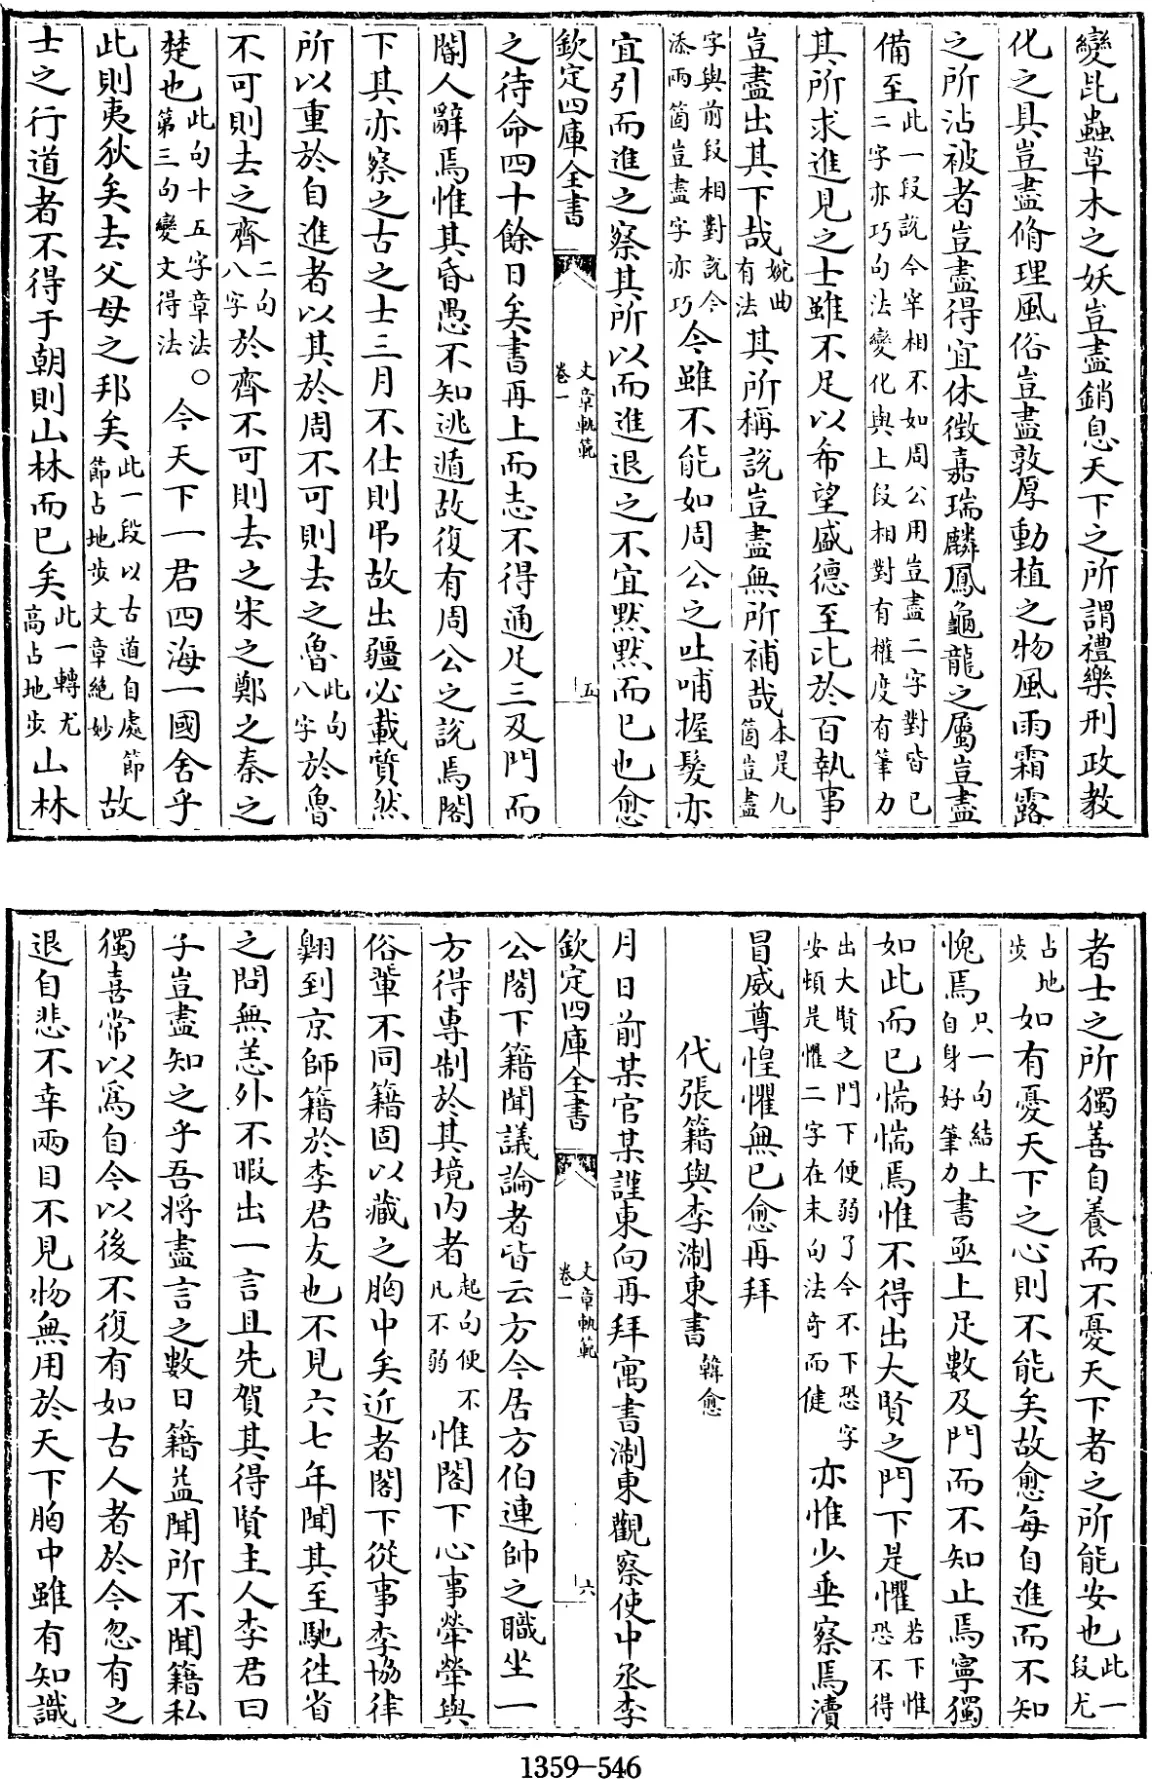 變昆蟲草木之妖豈盡銷息天下之所謂禮樂刑政教
化之具豈盡脩理風俗豈盡敦厚動植之物風雨霜露
之所沾被者豈盡得宜休徵嘉瑞麟鳳龜龍之屬豈盡
備至此一段説今宰相不如周公用豈盡二字對皆已二字亦巧句法變化與上段相對有權度有筆力
其所求進見之士雖不足以希望盛德至比於百執事
豈盡出其下哉婉曲有法其所稱説豈盡無所補哉本是九箇豈盡
字與前段相對説今添兩箇豈盡字亦巧今雖不能如周公之吐哺握髮亦
宜引而進之察其所以而進退之不宜默默而已也愈
欽定四庫全書
文章軌範
卷一
五
之待命四十餘日矣書再上而志不得通足三及門而
閽人辭焉惟其昏愚不知逃遁故復有周公之説焉閤
下其亦察之古之士三月不仕則弔故出疆必載質然
所以重於自進者以其於周不可則去之魯此句八字於魯
不可則去之齊二句八字於齊不可則去之宋之鄭之秦之
楚也此句十五字章法第三句變文得法○今天下一君四海一國舍乎
此則夷狄矣去父母之邦矣此一段以古道自處節節占地步文章絶妙故
士之行道者不得于朝則山林而已矣此一轉尤高占地步山林
者士之所獨善自養而不憂天下者之所能安也此一段尤
占地步如有憂天下之心則不能矣故愈每自進而不知
愧焉只一句結上自身好筆力書亟上足數及門而不知止焉寧獨
如此而已惴惴焉惟不得出大賢之門下是懼若下惟恐不得
出大賢之門下便弱了今不下恐字安頓是懼二字在末句法奇而健亦惟少垂察焉瀆
冒威尊惶懼無已愈再拜
代張籍與李淛東書 韓愈
月日前某官某謹東向再拜寓書淛東觀察使中丞李
欽定四庫全書
文章軌範
卷一
六
公閤下籍聞議論者皆云方今居方伯連帥之職坐一
方得專制於其境内者起句便不凡不弱惟閤下心事犖犖與
俗輩不同籍固以藏之胸中矣近者閤下從事李協律
翺到京師籍於李君友也不見六七年聞其至馳徃省
之問無恙外不暇出一言且先賀其得賢主人李君曰
子豈盡知之乎吾將盡言之數日籍益聞所不聞籍私
獨喜常以爲自今以後不復有如古人者於今忽有之
退自悲不幸兩目不見物無用於天下胸中雖有知識
1359—546